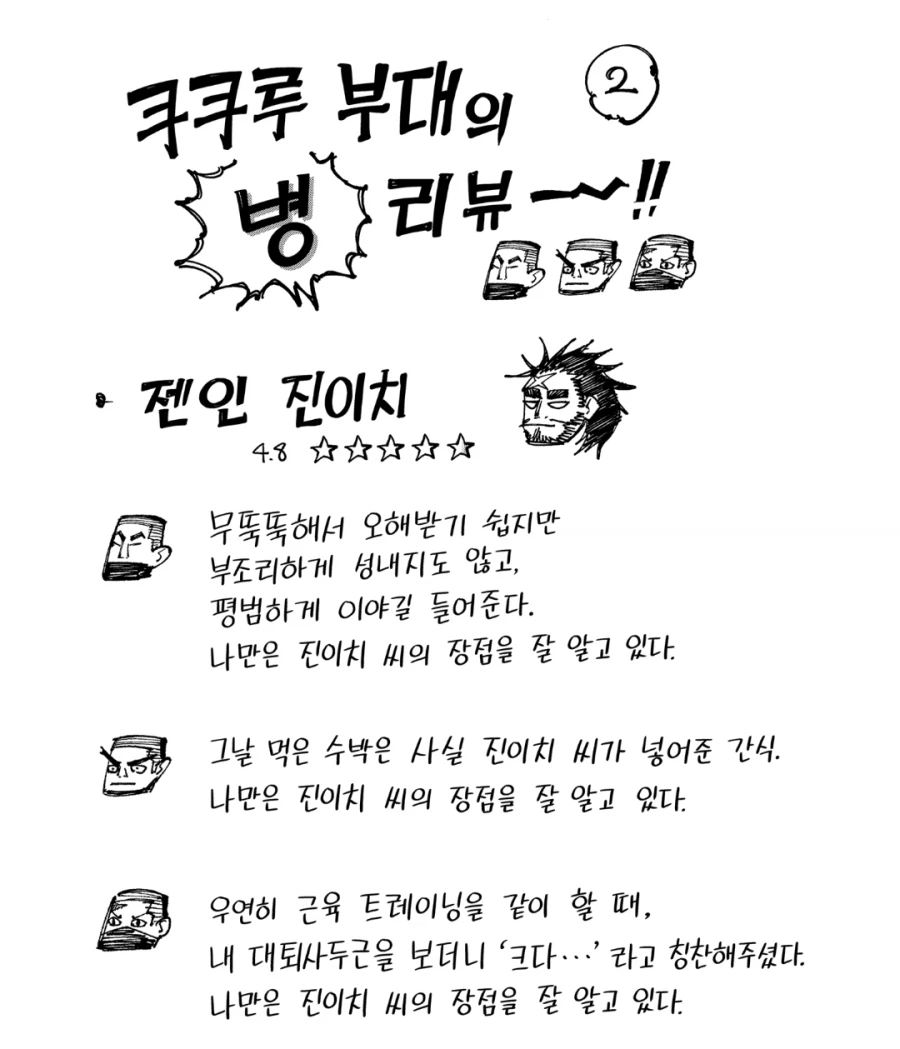 쿠쿠루 부대의 2
병 리뷰~!!
젠인 진이치
4.8 ☆☆☆☆☆
무뚝뚝해서 오해받기 쉽지만
부조리하게 성내지도 않고,
평범하게 이야길 들어준다.
나만은 진이치 씨의 장점을 잘 알고 있다.
그날 먹은 수박은 사실 진이치 씨가 넣어준 간식.
나만은 진이치 씨의 장점을 잘 알고 있다.
우연히 근육 트레이닝을 같이 할 때,
내 대퇴사두근을 보더니 '크다…' 라고 칭찬해주셨다.
나만은 진이치 씨의 장점을 잘 알고 있다.